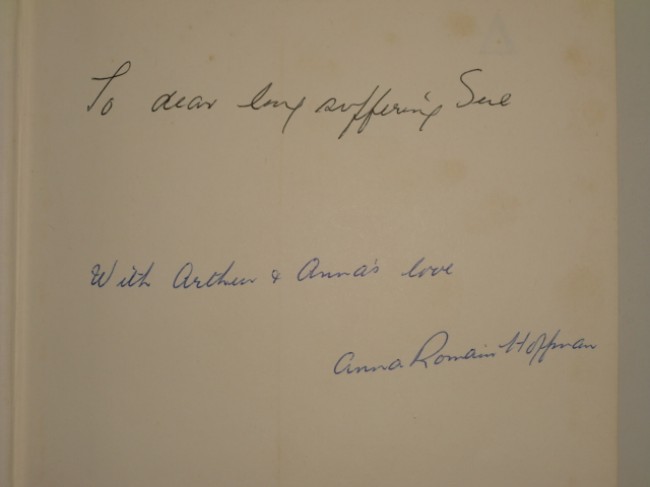 To dear long suffering Sue
With Arthur & Anna's love
Anna Romain Hoffman